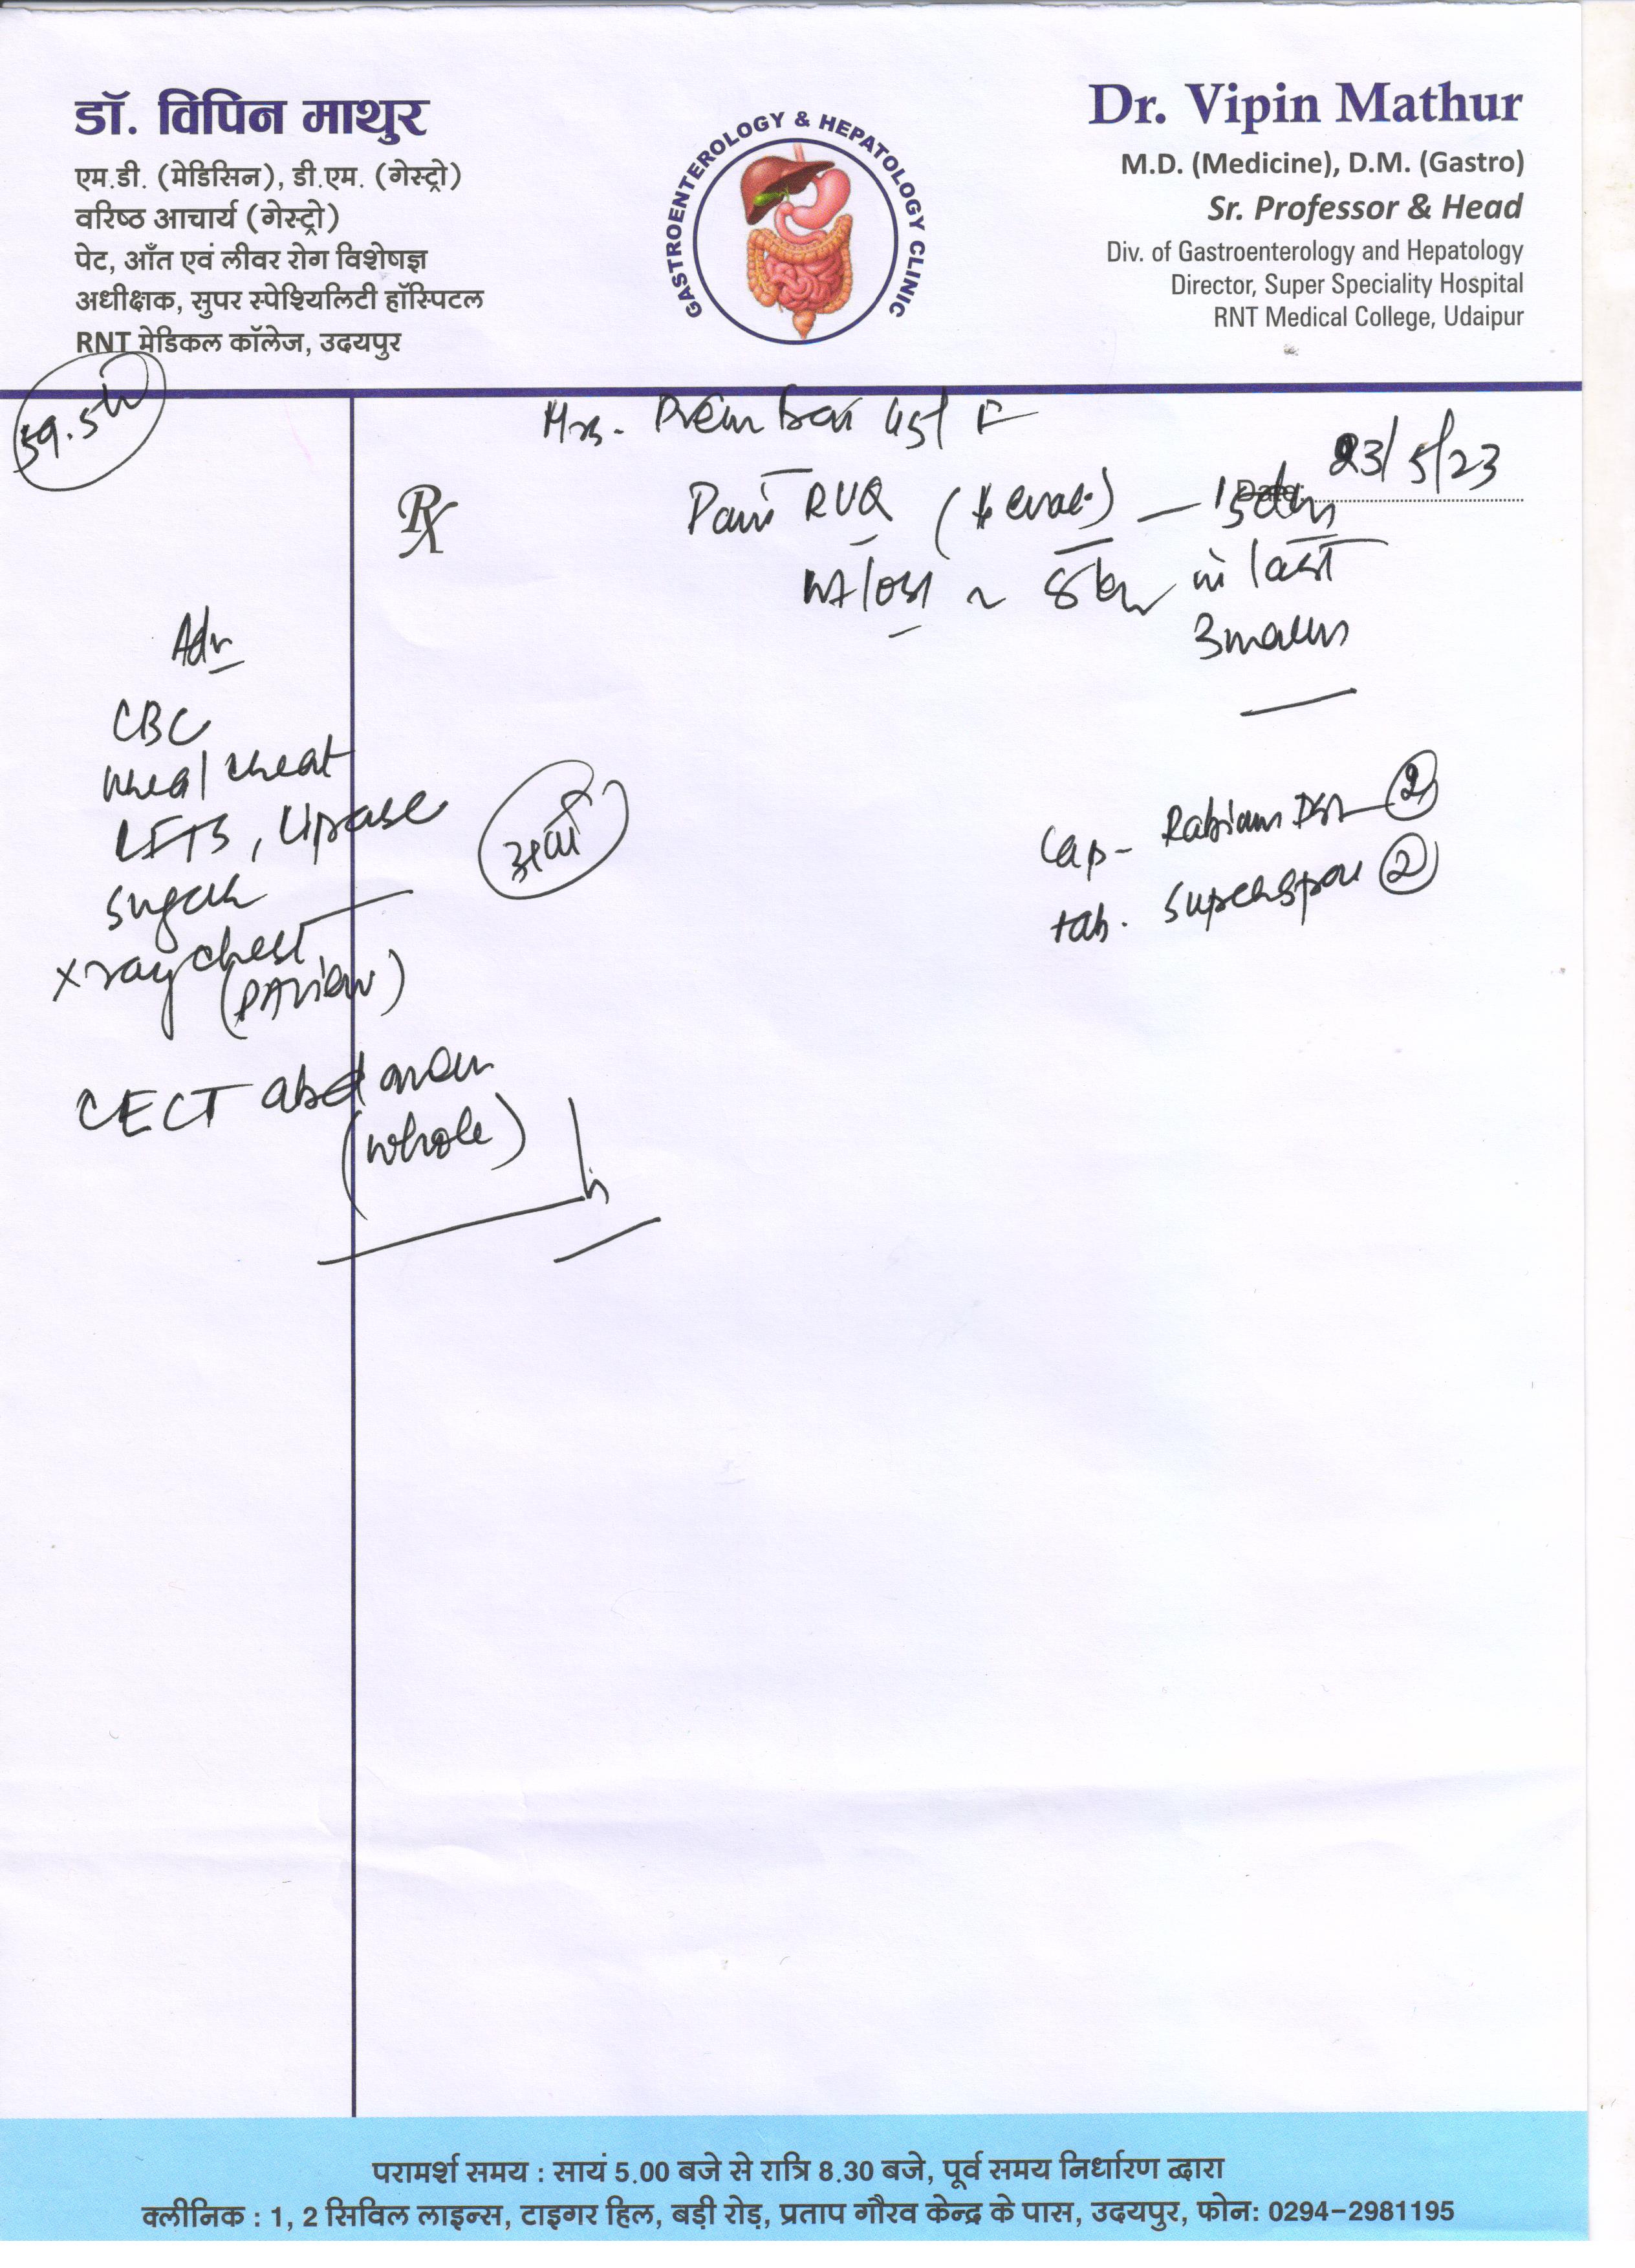 डॉ. विपिन माथुर
एम.डी. (मेडिसिन), डी.एम. (गेस्ट्रो)
वरिष्ठ आचार्य (गेस्ट्रो)
पेट, आँत एवं लीवर रोग विशेषज्ञ
अधीक्षक, सुपर स्पेश्यिलिटी हॉस्पिटल
RNT मेडिकल कॉलेज, उदयपुर
GASTROENTEROLOGY & HEPATOLOGY CLINIC
Dr. Vipin Mathur
M.D. (Medicine), D.M. (Gastro)
Sr. Professor & Head
Div. of Gastroenterology and Hepatology
Director, Super Speciality Hospital
RNT Medical College, Udaipur
59.5
Mrs. Prem bai 45/ F
Date: 23/5/23
Rx
Pain RUQ - 15
wt loss ~ 8 in last
3
Adv
CBC
LFTs, Lipase
Sugar
X ray chest
(PA view)
CECT abdomen
(whole)
Cap- Rabium DSR 2
tab. 2
परामर्श समय : सायं 5.00 बजे से रात्रि 8.30 बजे, पूर्व समय निर्धारण द्वारा
क्लीनिक : 1, 2 सिविल लाइन्स, टाइगर हिल, बड़ी रोड़, प्रताप गौरव केन्द्र के पास, उदयपुर, फोन: 0294-2981195